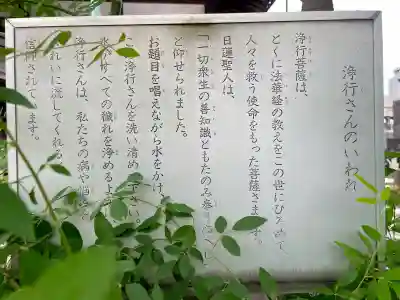 浄行さんのいわれ
浄行菩薩は、
とくに法華経の教えをこの世にひろめて
人々を救う使命をもった菩薩さまです。
日蓮聖人は、
「一切衆生の善知識ともたのみ
と仰せられました。
お題目を唱えながら水をかけ
浄行さんを洗い清め 下さい。
水がすべての穢れを浄めるよう
浄行さんは、私たちの病や悩み
れいに流してくれる
信仰されています。